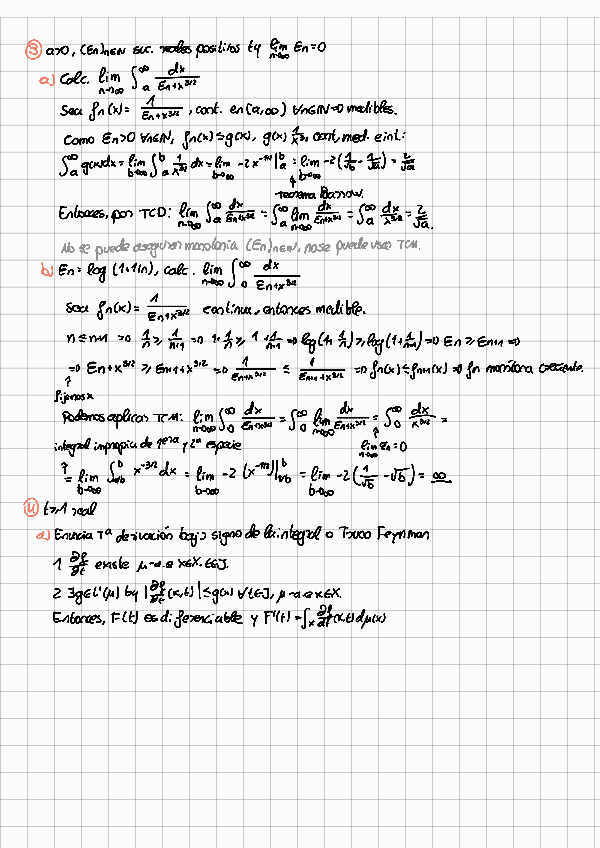 ③ a>0, (En)n∈N suc. reales positivos tq lim n→∞ En=0
a) Calc. lim n→∞ ∫a^∞ dx/(En+x^3/2)
Sea fn(x)= 1/(En+x^3/2), cont. en (a,∞) ∀n∈N ⇒ medibles.
Como En>0 ∀n∈N, fn(x)≤g(x), g(x) 1/x^3/2 cont, med. e int:
∫a^∞ g(x)dx = lim b→∞ ∫a^b 1/x^3/2 dx = lim b→∞ -2x^-1/2 |a^b = lim b→∞ -2(1/√b - 1/√a) = 2/√a
↑ Teorema Barrow.
Entonces, por TCD: lim n→∞ ∫a^∞ dx/(En+x^3/2) = ∫a^∞ lim n→∞ dx/(En+x^3/2) = ∫a^∞ dx/x^3/2 = 2/√a.
No se puede asegurar monotonía (En)n∈N, no se puede usar TCM.
b) En = log (1+1/n), calc. lim n→∞ ∫0^∞ dx/(En+x^3/2)
Sea fn(x) = 1/(En+x^3/2) continua, entonces medible.
n≤n+1 ⇒ 1/n ≥ 1/(n+1) ⇒ 1+1/n ≥ 1+1/(n+1) ⇒ log(1+1/n) ≥ log(1+1/(n+1)) ⇒ En ≥ En+1 ⇒
⇒ En+x^3/2 ≥ En+1+x^3/2 ⇒ 1/(En+x^3/2) ≤ 1/(En+1+x^3/2) ⇒ fn(x)≤fn+1(x) ⇒ fn monótona creciente.
↑ fijamos x
Podemos aplicar TCM: lim n→∞ ∫0^∞ dx/(En+x^3/2) = ∫0^∞ lim n→∞ dx/(En+x^3/2) = ∫0^∞ dx/x^3/2 =
integral impropia de 1era y 2ª especie ↑ lim n→∞ En=0
↑ = lim b→∞ ∫1/b^b x^-3/2 dx = lim b→∞ -2 (x^-1/2)|1/b^b = lim b→∞ -2 (1/√b - √b) = ∞
④ t>1 real
a) Enuncia Tª derivación bajo signo de la integral o Truco Feynman
1 ∂f/∂t existe μ-a.e x∈X, t∈J.
2 ∃g∈L¹(μ) tq |∂f/∂t (x,t)| ≤ g(x) ∀t∈J, μ-a.e x∈X.
Entonces, F(t) es diferenciable y F'(t) = ∫X ∂f/∂t (x,t) dμ(x)